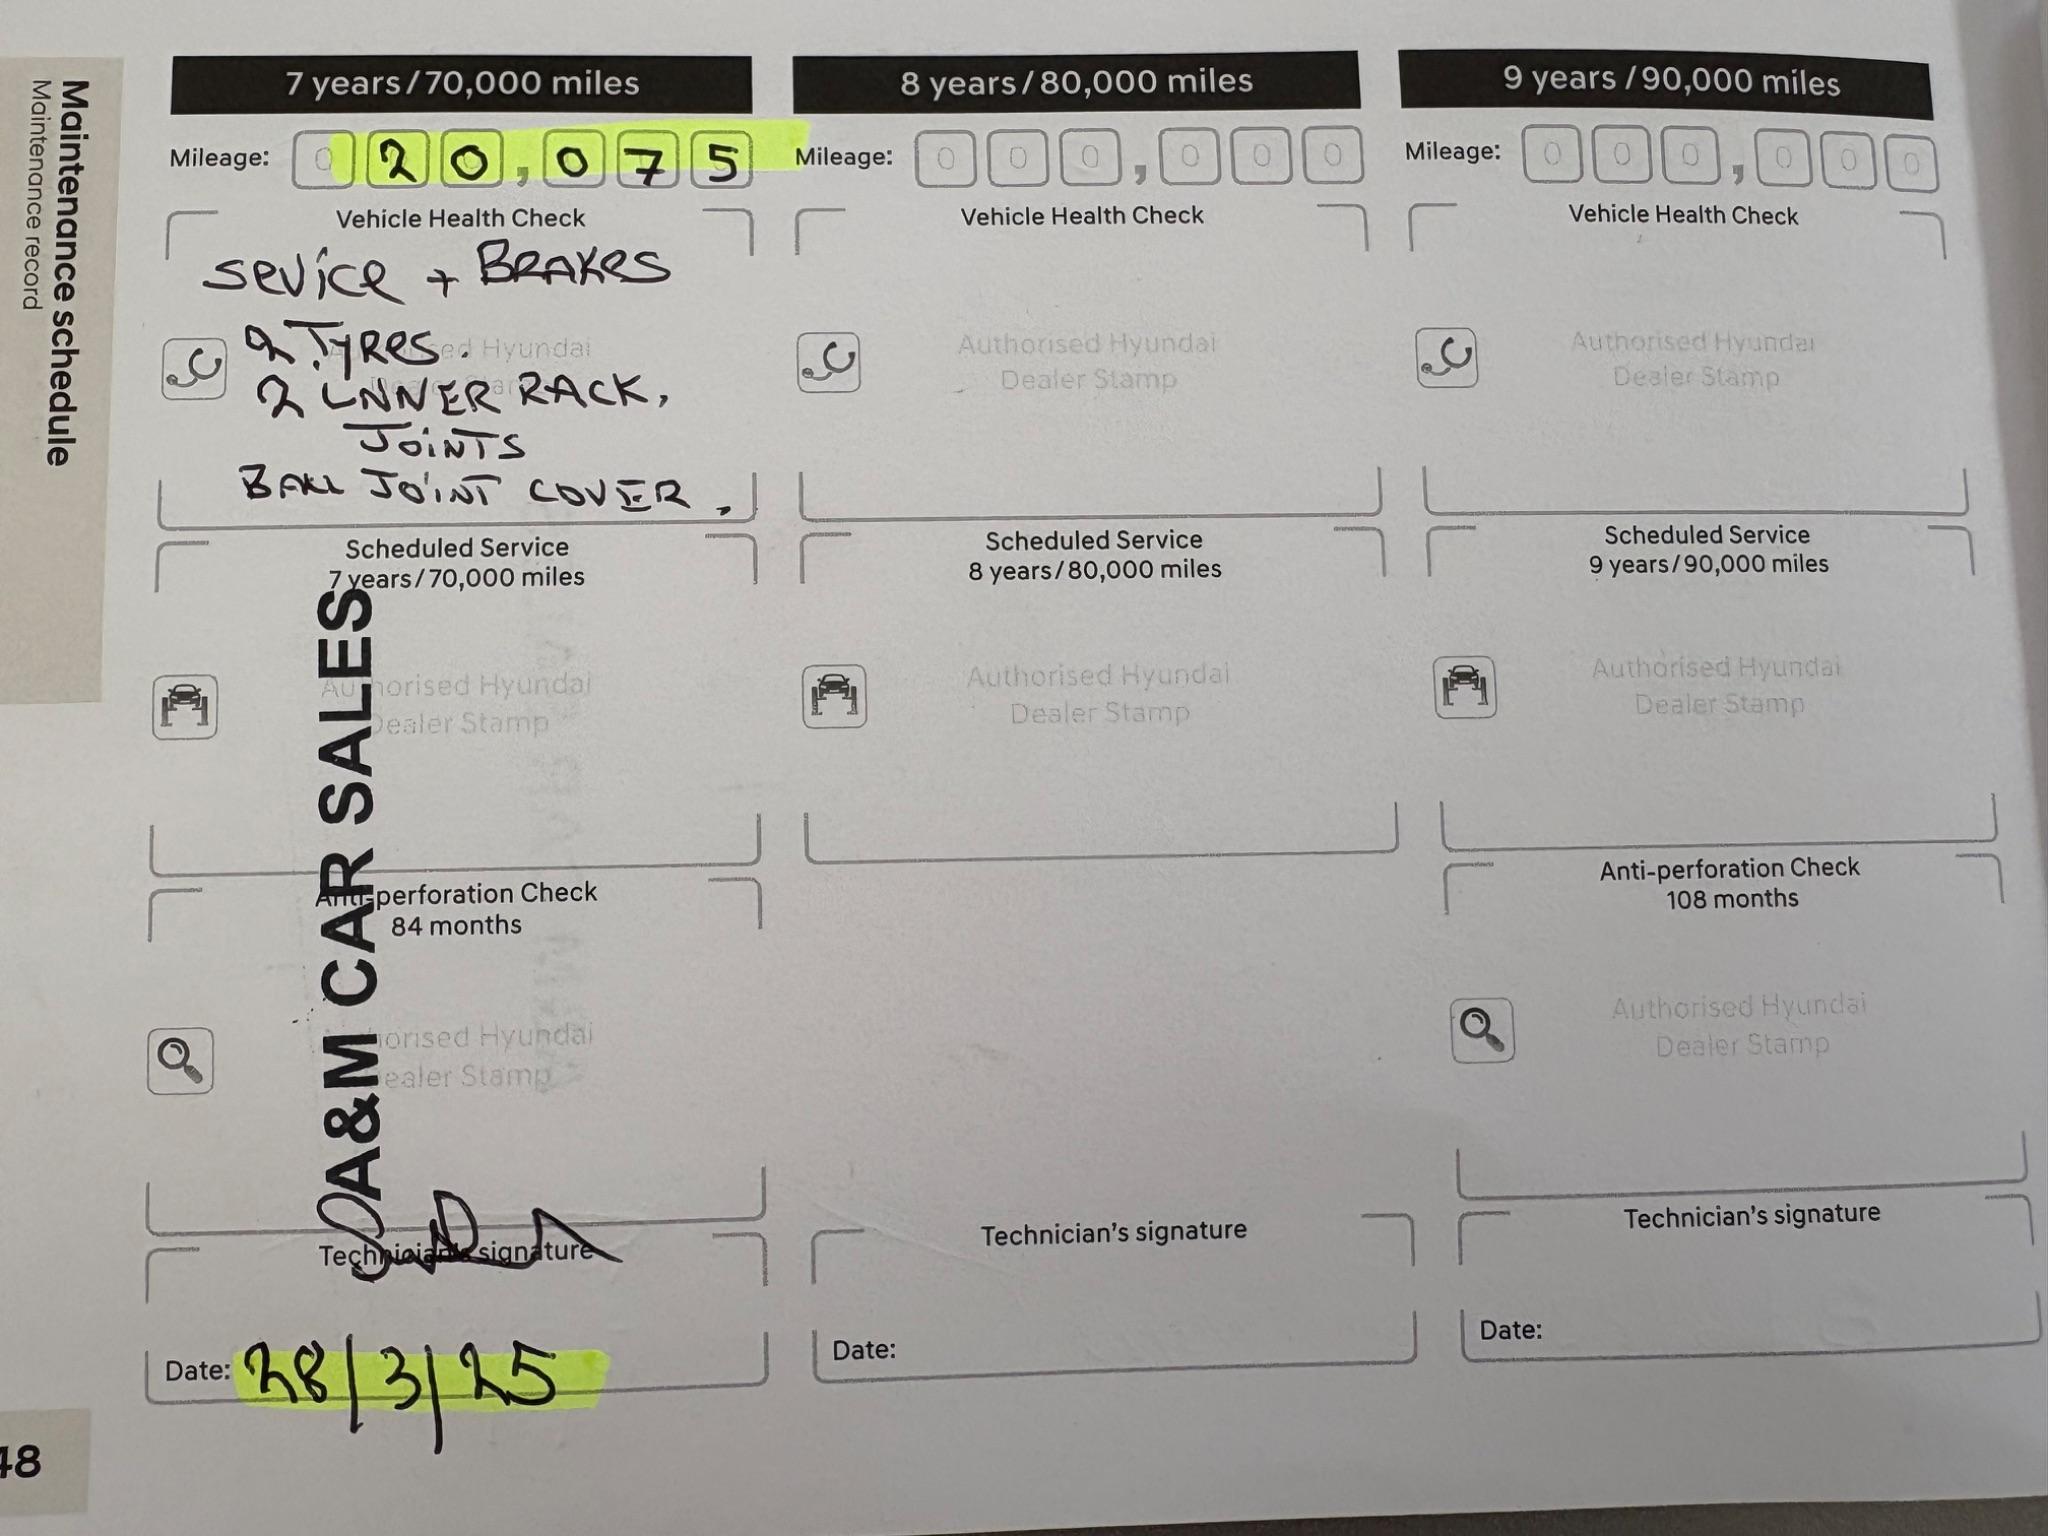 Maintenance schedule
Maintenance record
7 years/70,000 miles
Mileage: 0 20,075
Vehicle Health Check
SeVice + BRAKes
2 TyRes.
Hyundai
2 LNNER RACK,
JOiNTS
BALL JOiNT COVER,
Scheduled Service
7 years/70,000 miles
Authorised Hyundai
Dealer Stamp
Anti-perforation Check
84 months
Authorised Hyundai
Dealer Stamp
A&M CAR SALES
Technician's signature
Date: 28/3/25
8 years/80,000 miles
Mileage: 000,000
Vehicle Health Check
Authorised Hyundai
Dealer Stamp
Scheduled Service
8 years/80,000 miles
Authorised Hyundai
Dealer Stamp
Technician's signature
Date:
9 years/90,000 miles
Mileage: 000,000
Vehicle Health Check
Authorised Hyundai
Dealer Stamp
Scheduled Service
9 years/90,000 miles
Authorised Hyundai
Dealer Stamp
Anti-perforation Check
108 months
Authorised Hyundai
Dealer Stamp
Technician's signature
Date:
48